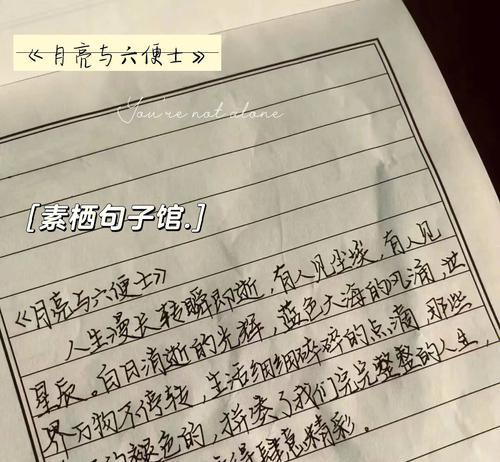 《月亮与六便士》
You're not alone
[素栖句子馆.]
《月亮与六便士》
人生漫长转瞬即逝，有人见尘埃，有人见
星辰。白日滴逝的光辉，蓝色大海的叹滴，世
界万物不停转，生活细细碎碎的点滴，那些
的，拼凑了我们完完整整的人生，
得肆意精彩。